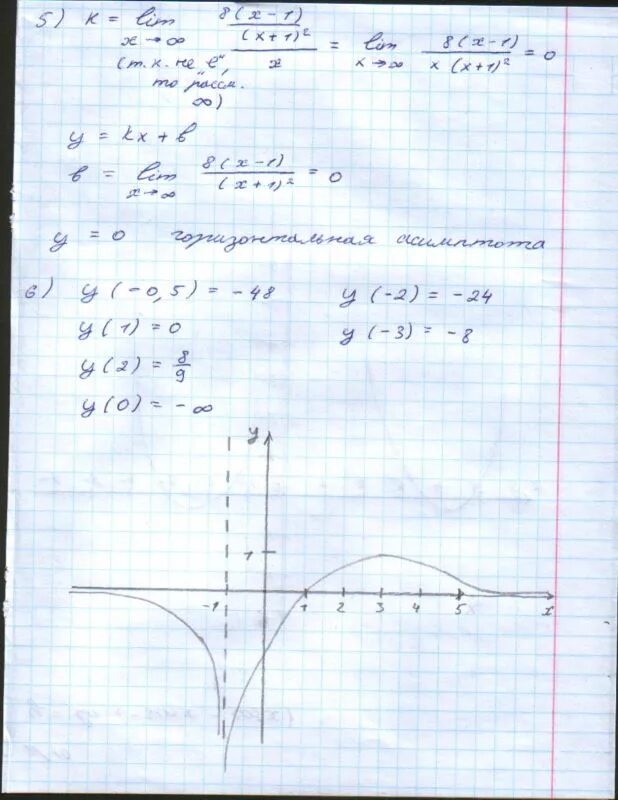 5) k = lim x→∞ (8(x-1)/(x+1)²)/x = lim x→∞ 8(x-1)/(x(x+1)²) = 0
(т.к. не "е",
то рассм.
∞)
y = kx + в
в = lim x→∞ 8(x-1)/(x+1)² = 0
y = 0 горизонтальная асимптота
6) y(-0,5) = -48 y(-2) = -24
y(1) = 0 y(-3) = -8
y(2) = 8/9
y(0) = -∞
y
1
-1 1 2 3 4 5 x